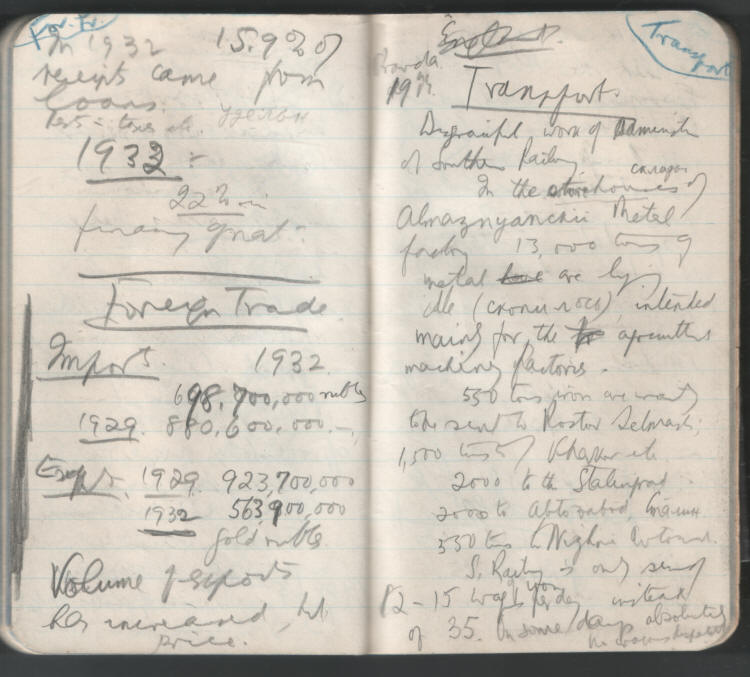 For. Tr.
In 1932 15.9% of
receipts came from
loans.
Rest = taxes etc.
1932 :-
22% in
financing
Foreign Trade
Import. 1932.
698,700,000 rubles
1929. 880,600,000.—
Export. 1929. 923,700,000
1932 563,900,000
gold rubles
Volume of exports
has increased, but
price.
Transport
Pravda
19th.
Transport.
Disgraceful work of
of Southern Railway.
In the storehouses of
Almaznyanskii Metal
factory 13,000 tons of
metal have are lying
idle intended
mainly for the agricultural
machinery factories.
550 tons iron are ready
to be sent to Rostov Selmash;
1,500 tons to Kharkov etc.
2000 to the Stalingrad
2000 to
550 tons to Nizhni
S. Railway is only sending
12-15 wagons per day instead
of 35. In some days absolutely
no wagons